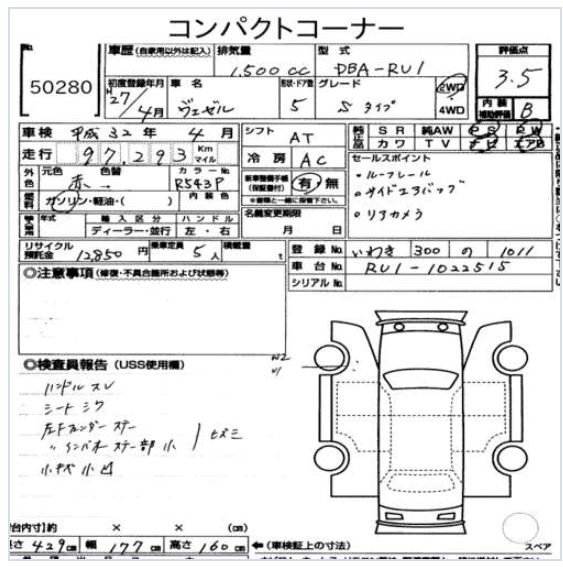 コンパクトコーナー
No.
50280
車歴 (自家用以外は記入) 排気量 型式
1,500cc DBA-RU1
初度登録年月 車名 形状・ドア数 グレード
27/4月 ヴェゼル 5 Sタイプ
2WD
・
4WD
評価点
3.5
内装
補助評価 B
車検 平成32年 4月
走行 97,293 Km
マイル
外色 元色 色替 カラーNo.
赤 R543P
燃料 ガソリン・軽油・( ) 内装色
年式 輸入区分 ハンドル
ディーラー・並行 左・右
シフト AT
冷房 AC
新車整備手帳
(保証書付) 有・無
※書類と一緒に保管下さい。
名義変更期限
月 日
純正品 SR 純AW PS PW
カワ TV ナビ エアB
セールスポイント
・ルーフレール
・サイドエアバッグ
・リアカメラ
リサイクル
預託金 12,850円 乗車定員 5人 積載量 t
登録No. いわき 300 の 1011
車台No. RU1-1022515
シリアルNo.
◎注意事項 (修復・不具合箇所および状態等)
◎検査員報告 (USS使用欄)
ハンドルスレ
シートシワ
左Fフェンダーステー
〃インパネステー部小 ヒズミ
小キズ小凹
W2
U1
台内寸)約 × × (cm)
長さ 429cm 幅 177cm 高さ 160cm ←(車検証上の寸法)
スペア